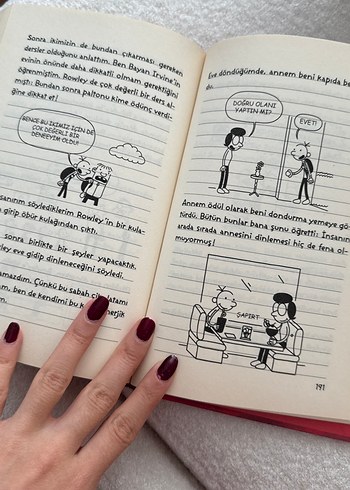 Sonra ikimizin de bundan çıkarması gereken
dersler olduğunu anlattım. Ben Bayan Irvine'in
evinin önünde daha dikkatli olmam gerektiğini
öğrenmiştim. Rowley de çok değerli bir ders al-
mıştı: Bundan sonra paltonu kime ödünç verdi-
ğine dikkat et!
BENCE BU İKİMİZ İÇİN DE
ÇOK DEĞERLİ BİR
DENEYİM OLDU!
söylediklerim Rowley'in bir kula-
girip öbür kulağından çıktı.
sonra birlikte bir şeyler yapacaktık,
eve gidip dinleneceğini söyledi.
Çünkü bu sabah
ben de kendimi bu
Eve döndüğümde, annem beni kapıda
DOĞRU OLANI
YAPTIN MI?
EVET!
Annem ödül olarak beni dondurma yemeye gö-
türdü. Bütün bunlar bana şunu öğretti: İnsanın
arada sırada annesini dinlemesi hiç de fena ol-
muyormuş!
ŞAPIRT
191